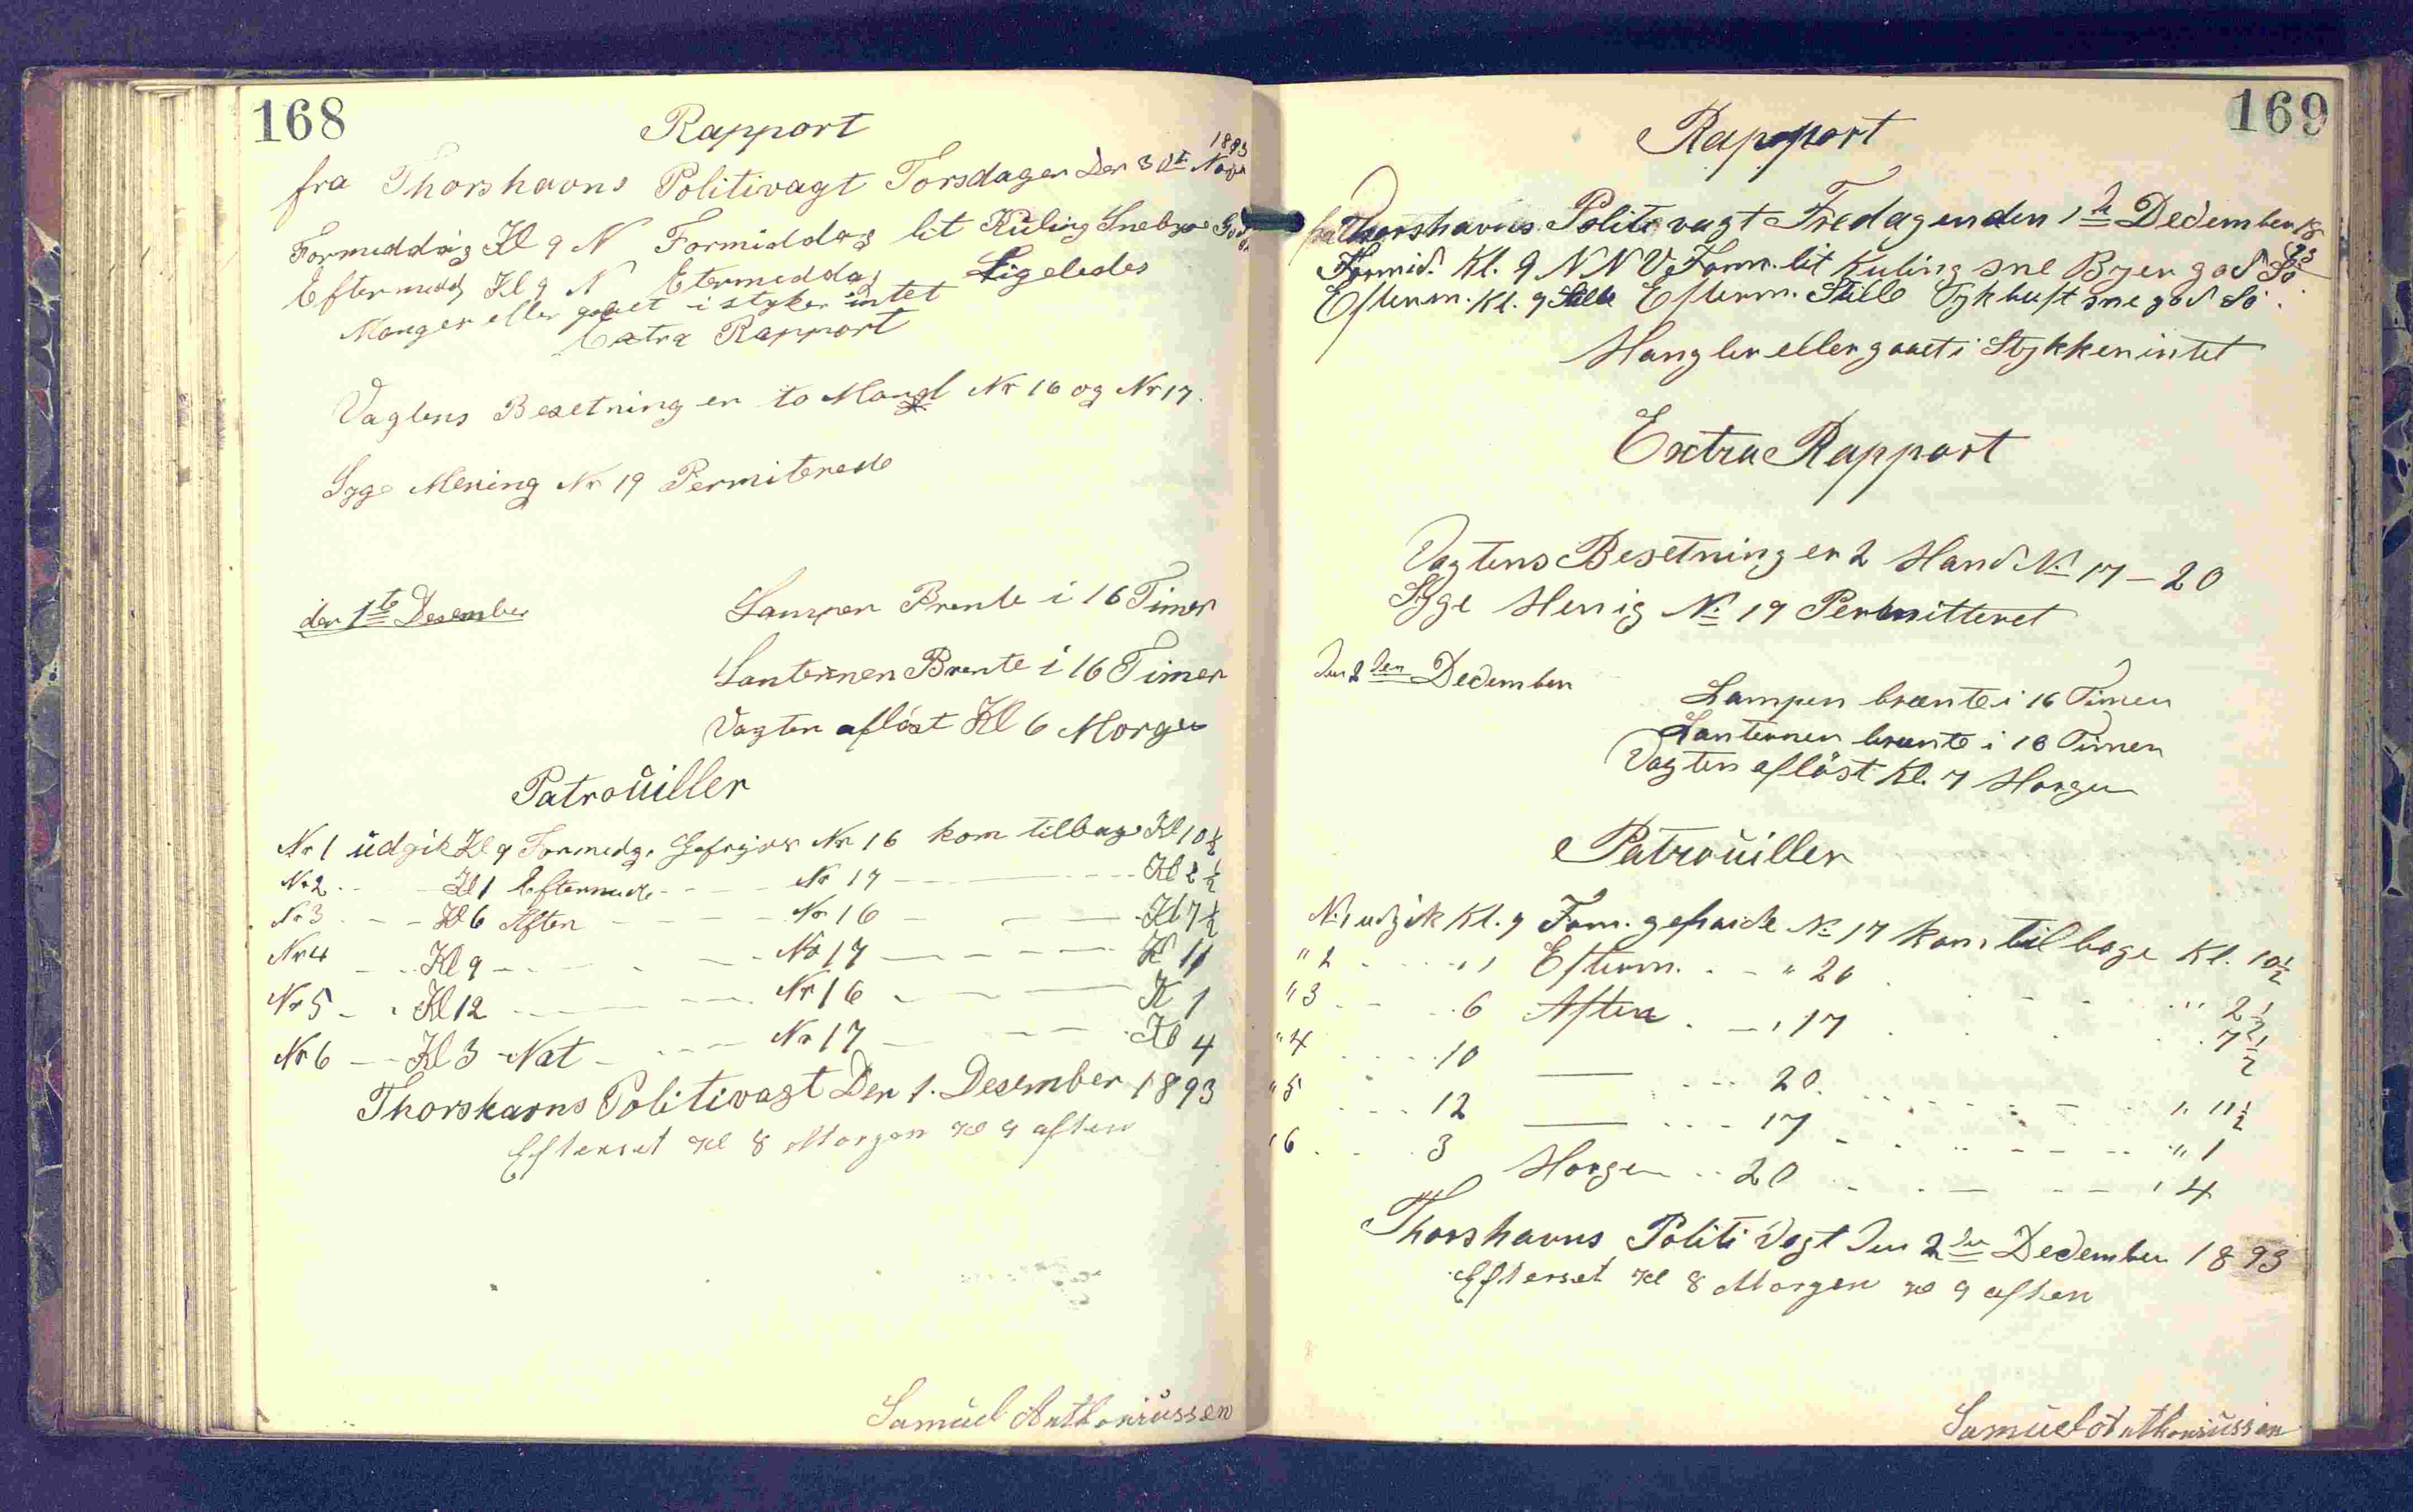 168
Rapport
1893
fra Thorshavns Politivagt Torsdagen Den 30te Novbr
Formeddag Kl 9 N Formiddag lit Kuling Snebye God
Eftermedd Kl 9 N Etermeddag Ligeledes
Manger eller gaaet i styker intet
Extra Rapport
Vagtens Besetning er to Mand Nr 16 og Nr 17.
Syge Mening Nr 19 Permiterede
den 1te Desember
Lampen Brente i 16 Timer
Lanternen Brente i 16 Timer
Vagten afløst Kl 6 Morgen
Patrouiller
Nr 1 udgik Kl 9 Formedg. Gefrejder Nr 16 kom tilbage Kl 10 ½
Nr 2 Kl 1 Eftermed Nr 17 Kl 2 ½
Nr 3 Kl 6 Aften Nr 16 Kl 7 ½
Nr 4 Kl 9 Nr 17 Kl 11
Nr 5 Kl 12 Nr 16 Kl 1
Nr 6 Kl 3 Nat Nr 17 Kl 4
Thorshavns Politivagt Den 1. Desember 1893
Efterset Kl 8 Morgen Kl 9 aften
Samuel Anthoniussen
169
Rapport
fra Thorshavns Politivagt Fredagen den 1te December 18
93
Formid. Kl. 9 N N V. Form. lit Kuling sne Byer god Sö
Efterm. Kl. 9 Stille Efterm. Stille Tyk luft sne god Sö.
Mangler eller gaaet i Stykker intet
Extra Rapport
Vagtens Besetning er 2 Mand No 17 - 20
Syge Menig No 19 Permitteret
den 2den December
Lampen brænte i 16 Timer
Lanternen brænte i 16 Timer
Vagten aflöst Kl. 7 Morgen
Patrouiller
No 1 udgik Kl. 9 Form. gefraide No 17 kom tilbage Kl. 10 ½
" 2 " 1 Efterm. " 20 " 2 ½
" 3 6 Aften " 17 7 ½
" 4 10 — 20 " 11 ½
" 5 12 — 17 " 1
" 6 3 Morgen 20 " 4
Thorshavns Politi Vagt den 2den December 1893
Efterset Kl 8 Morgen Kl 9 aften
Samuel Anthoniussen